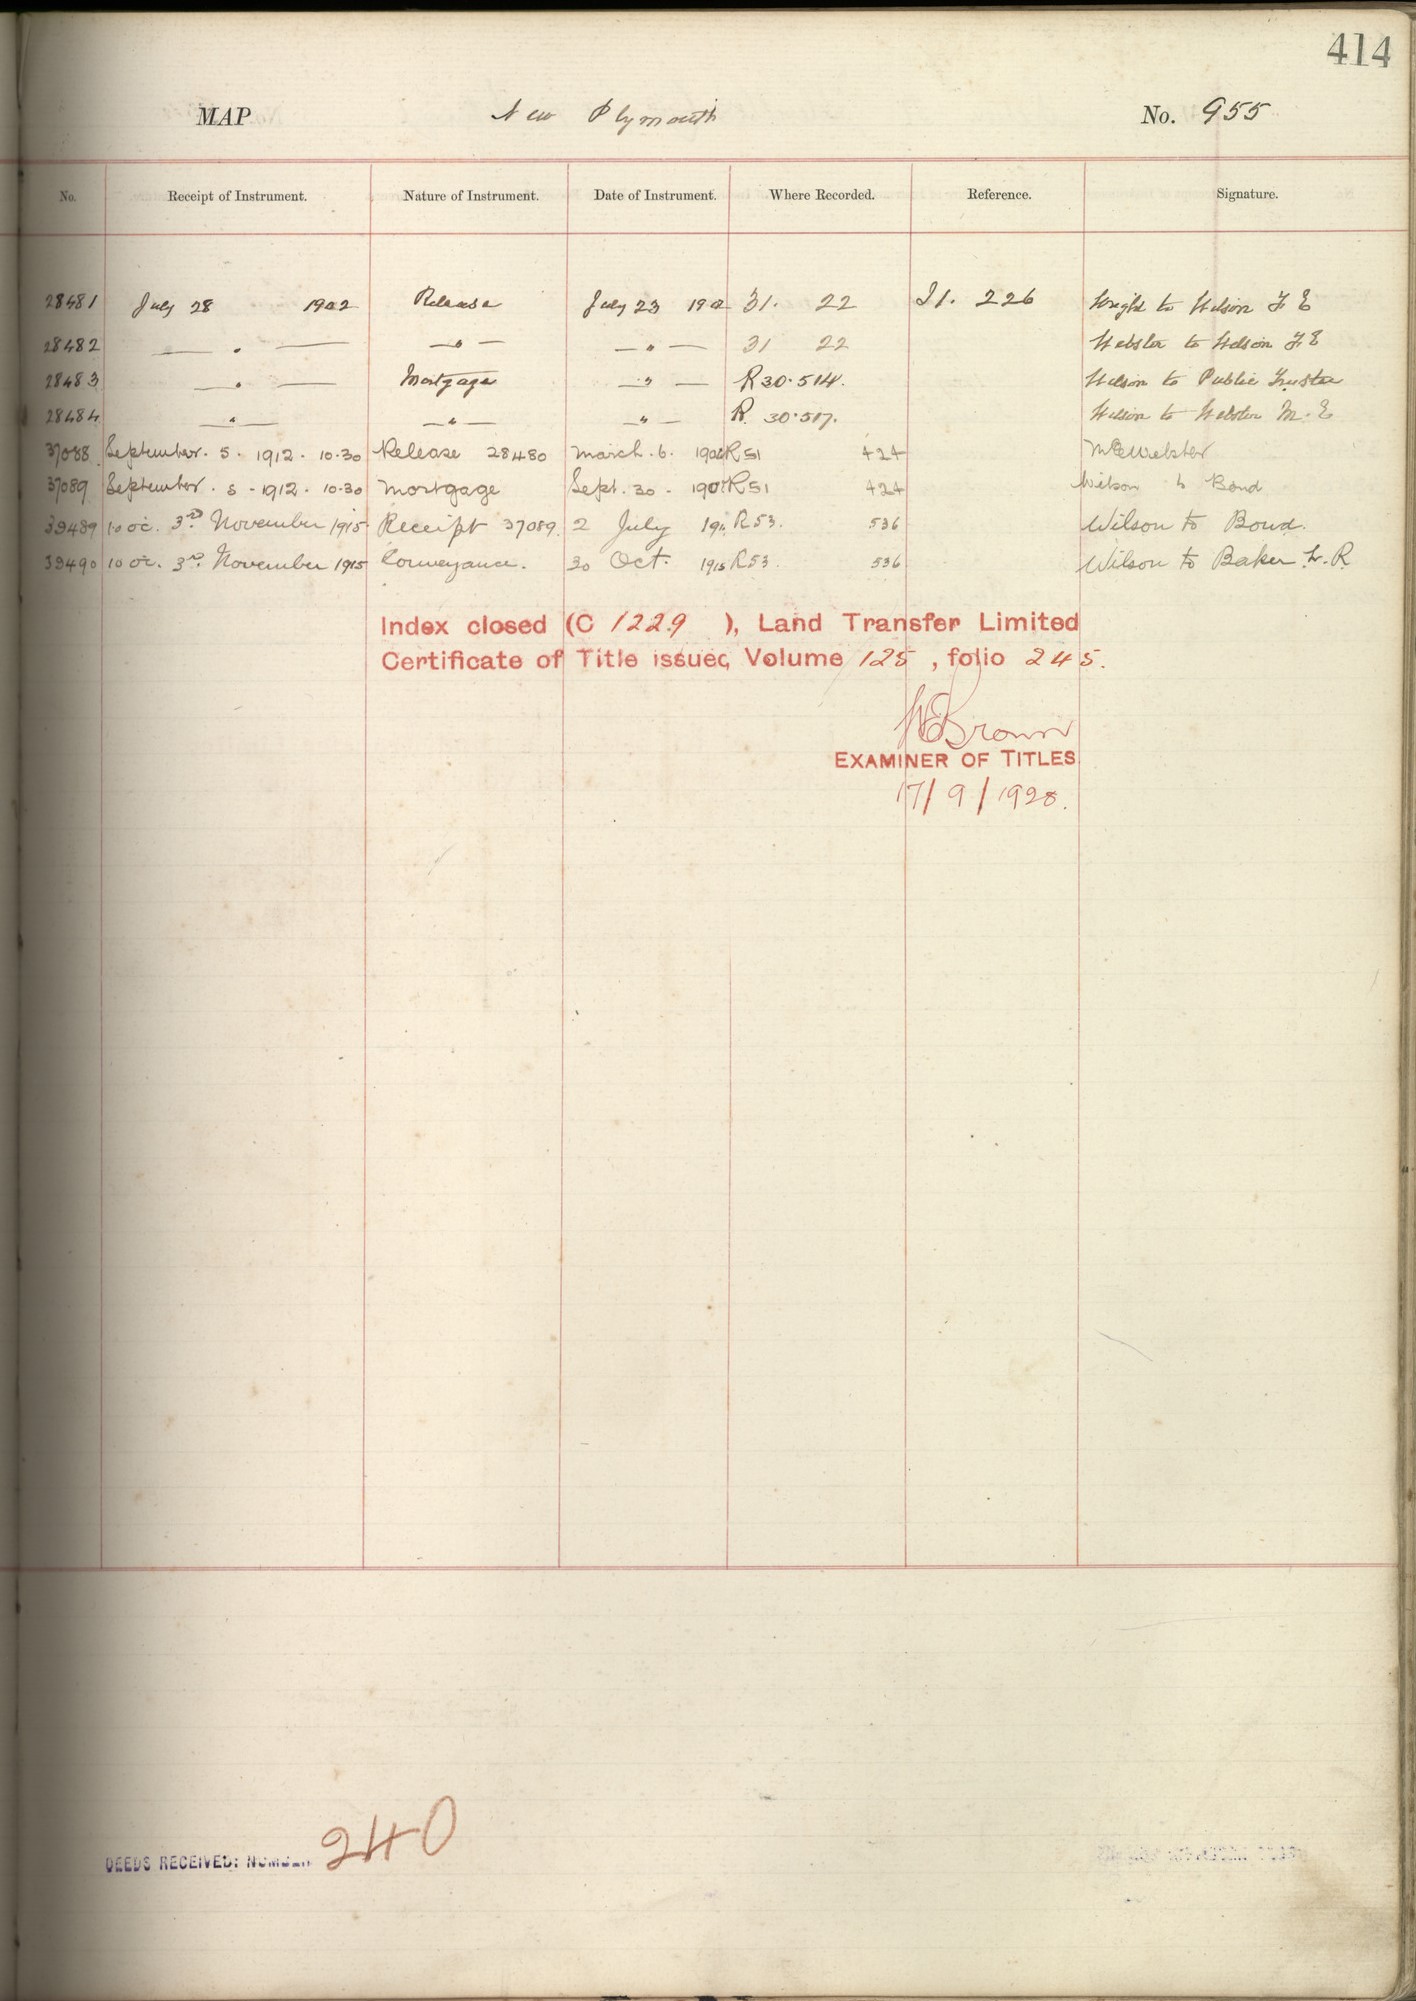 414
MAP New Plymouth No. 955
No. Receipt of Instrument. Nature of Instrument. Date of Instrument. Where Recorded. Reference. Signature.
28481 July 28 1902 Release July 23 1902 31. 22 I1. 226 Wright to Wilson F E
28482 — " — — " — — " — 31 22 Webster to Wilson F E
28483 — " — Mortgage — " — R 30.514. Wilson to Public Trustee
28484 — " — — " — — " — R. 30.517. Wilson to Webster M. E
37088 September. 5. 1912. 10.30 Release 28480 March. 6. R 51 424 M E Webster
37089 September. 5 - 1912. 10.30 Mortgage Sept. 30. 1907 R 51 424 Wilson to Bond
39489 10 oc. 3rd November 1915 Receipt 37089. 2 July R 53. 536 Wilson to Bond.
39490 10 oc. 3rd November 1915 Conveyance. 30 Oct. 1915 R 53. 536 Wilson to Baker L. R
Index closed (C 1229 ), Land Transfer Limited
Certificate of Title issued, Volume 125, folio 245.
Brown
EXAMINER OF TITLES
17/9/1928.
DEEDS RECEIVED: NUMBER 240